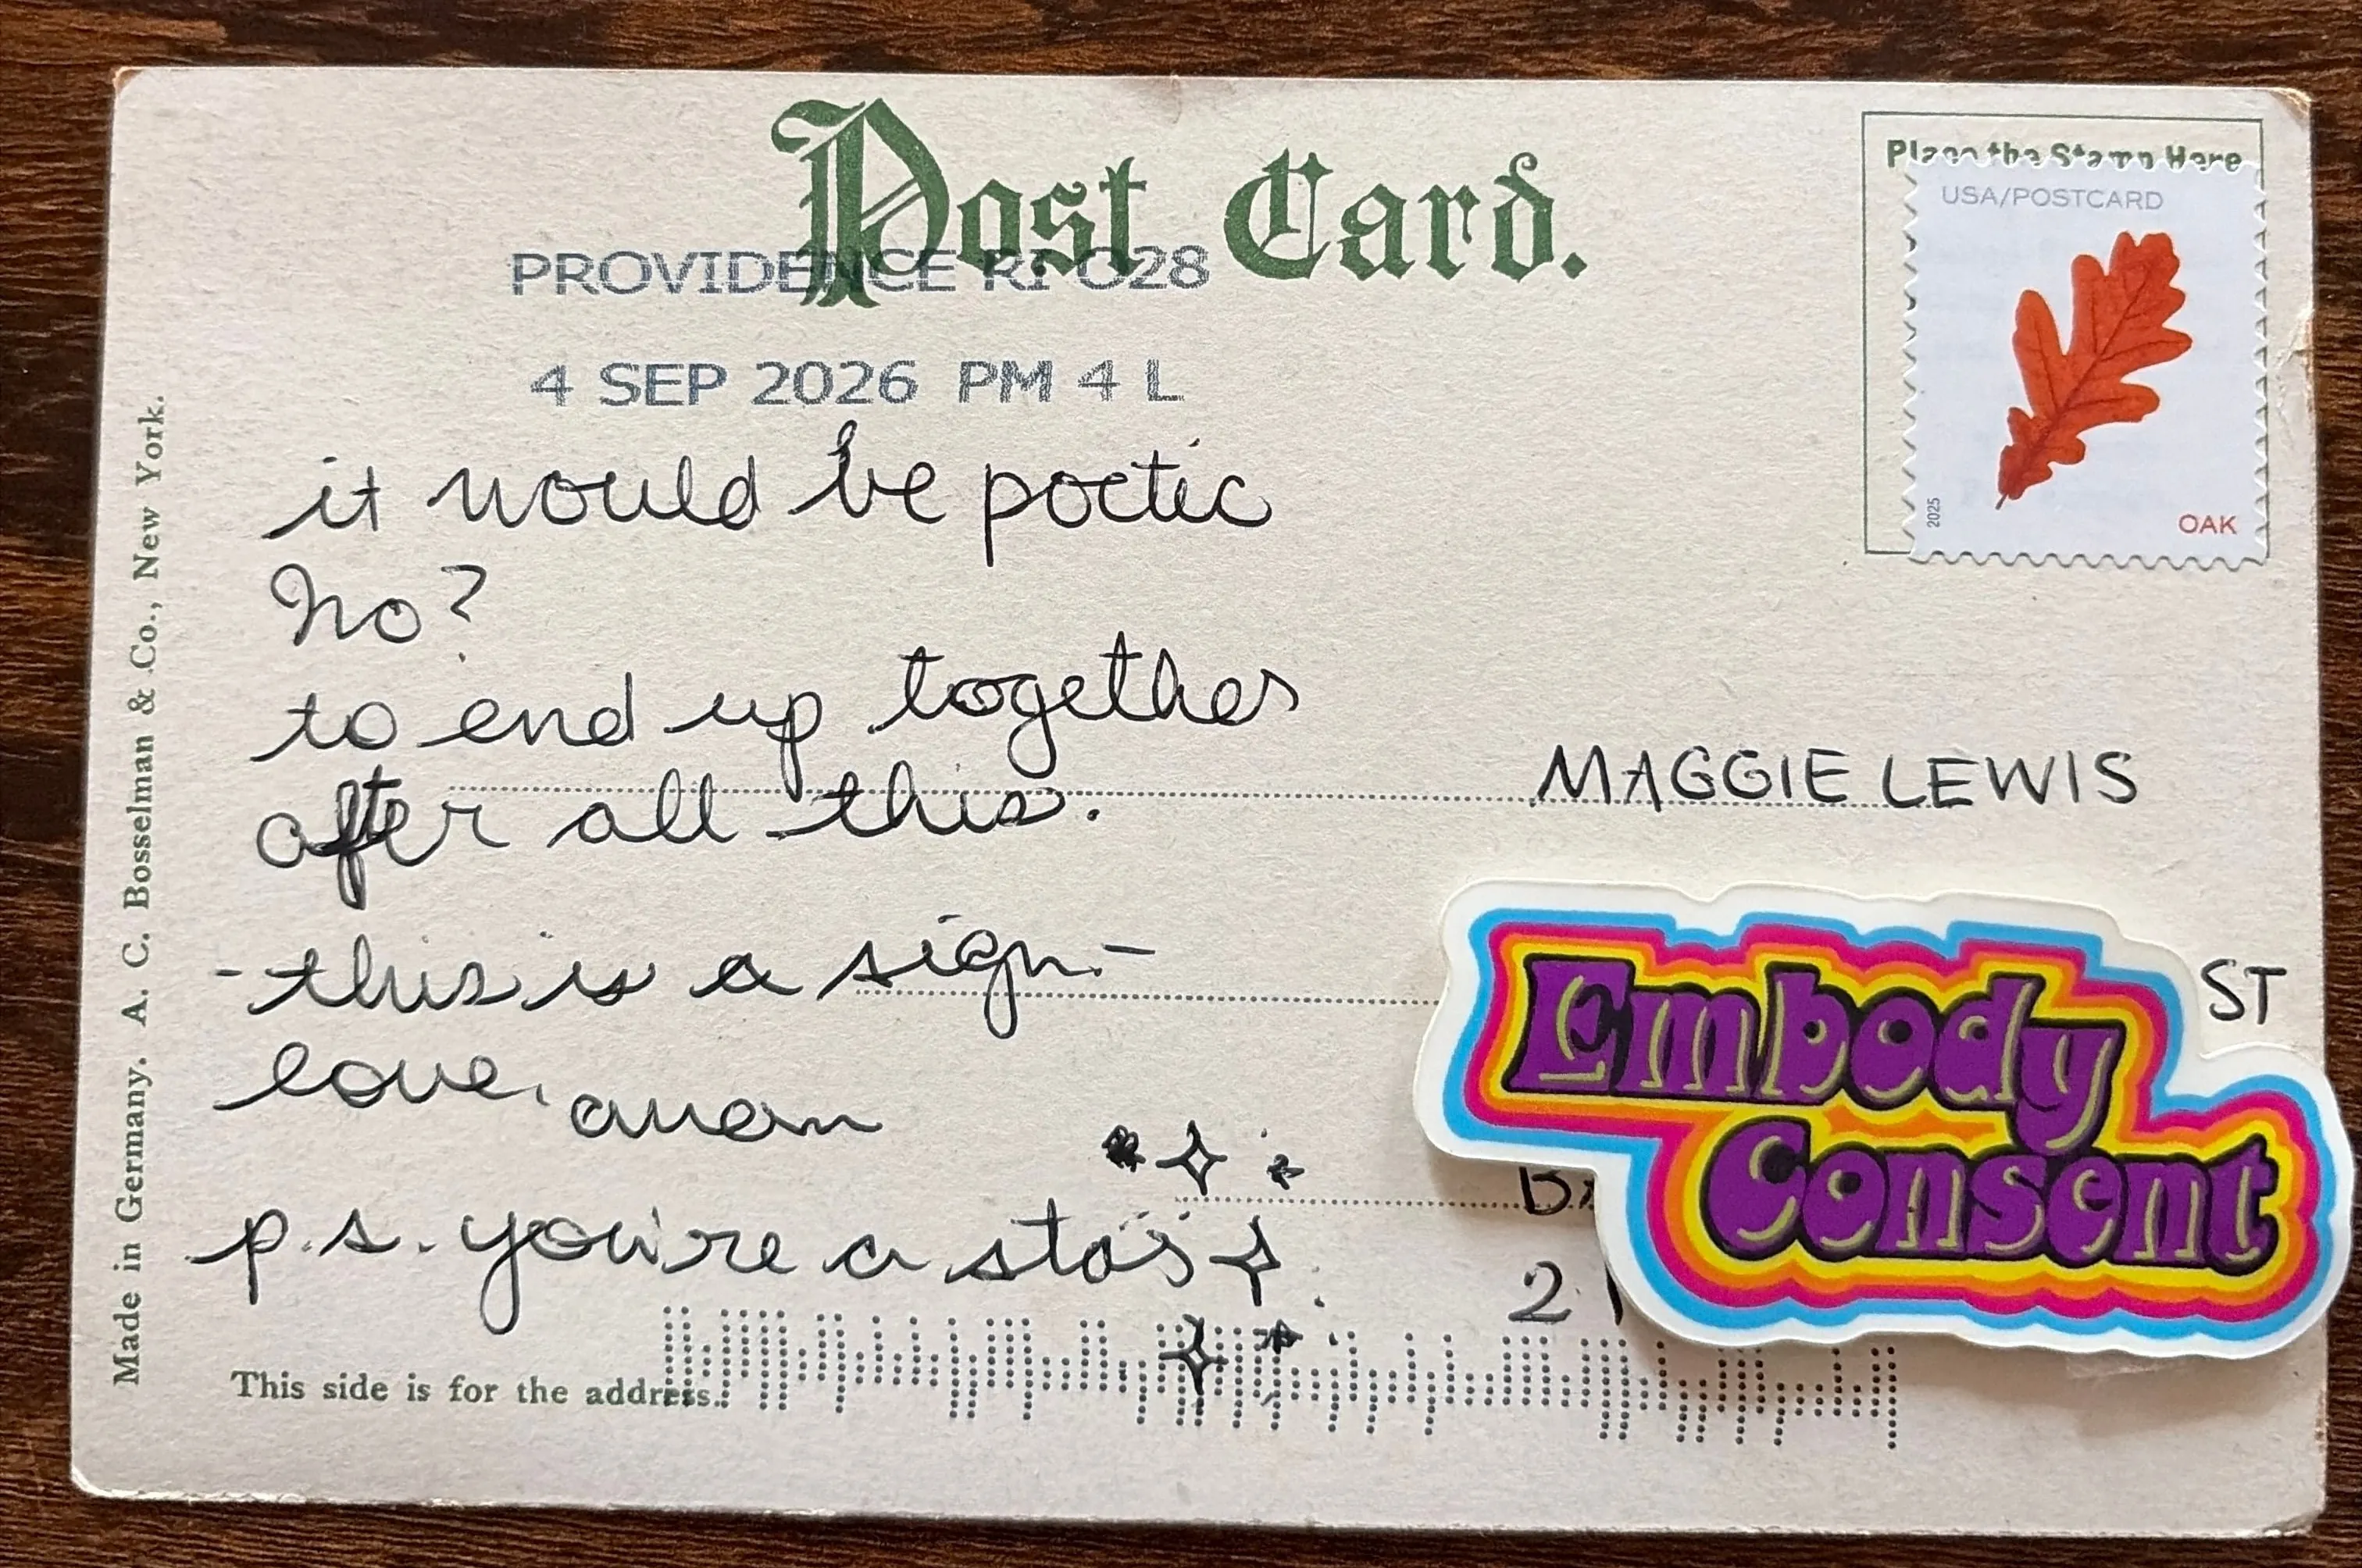 Post Card.
Place the Stamp Here
USA/POSTCARD
2025
OAK
PROVIDENCE RI 028
4 SEP 2026 PM 4 L
it would be poetic
no?
to end up together
after all this.
- this is a sign. -
love, anon
p.s. you're a star
MAGGIE LEWIS
ST
Embody
Consent
2
This side is for the address.
Made in Germany. A. C. Bosselman & Co., New York.